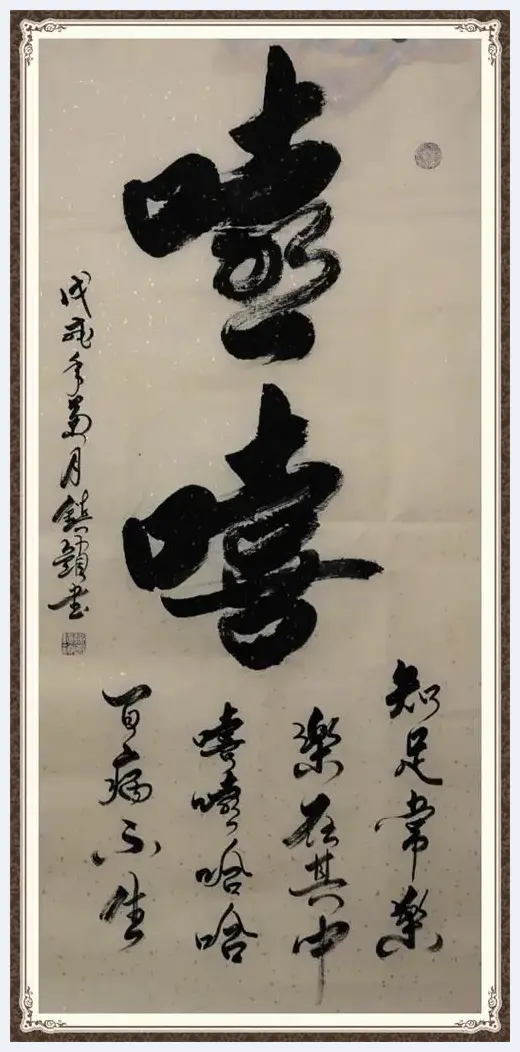 嘻
嘻
知足常樂
樂在其中
嘻嘻哈哈
百病不生
戊戌年菊月鎮韻書